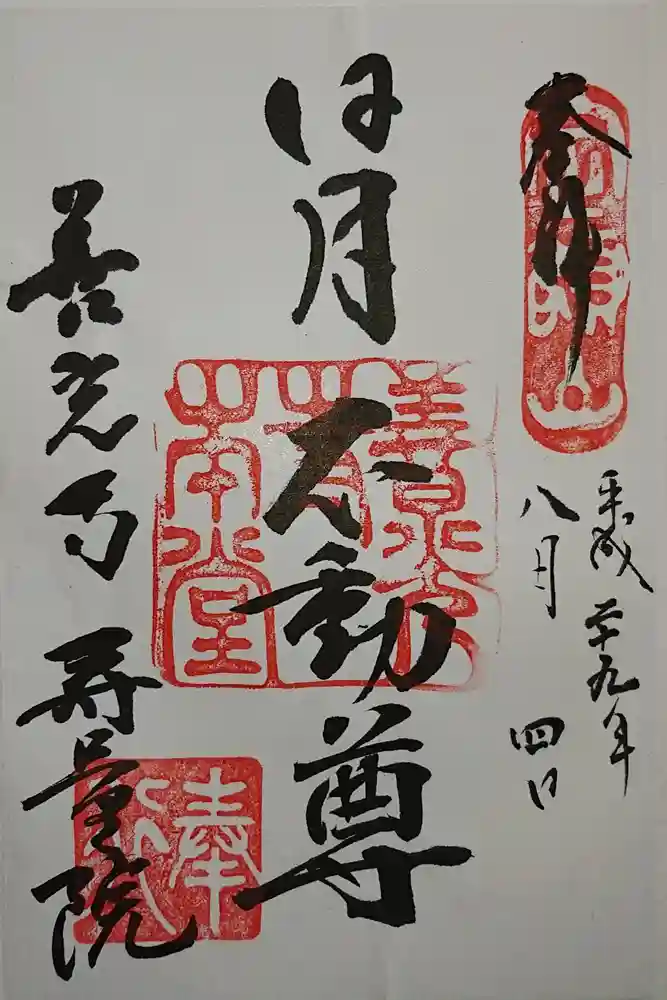 奉拝
平成二十九年
八月四日
日月不動尊
善光寺 寿量院